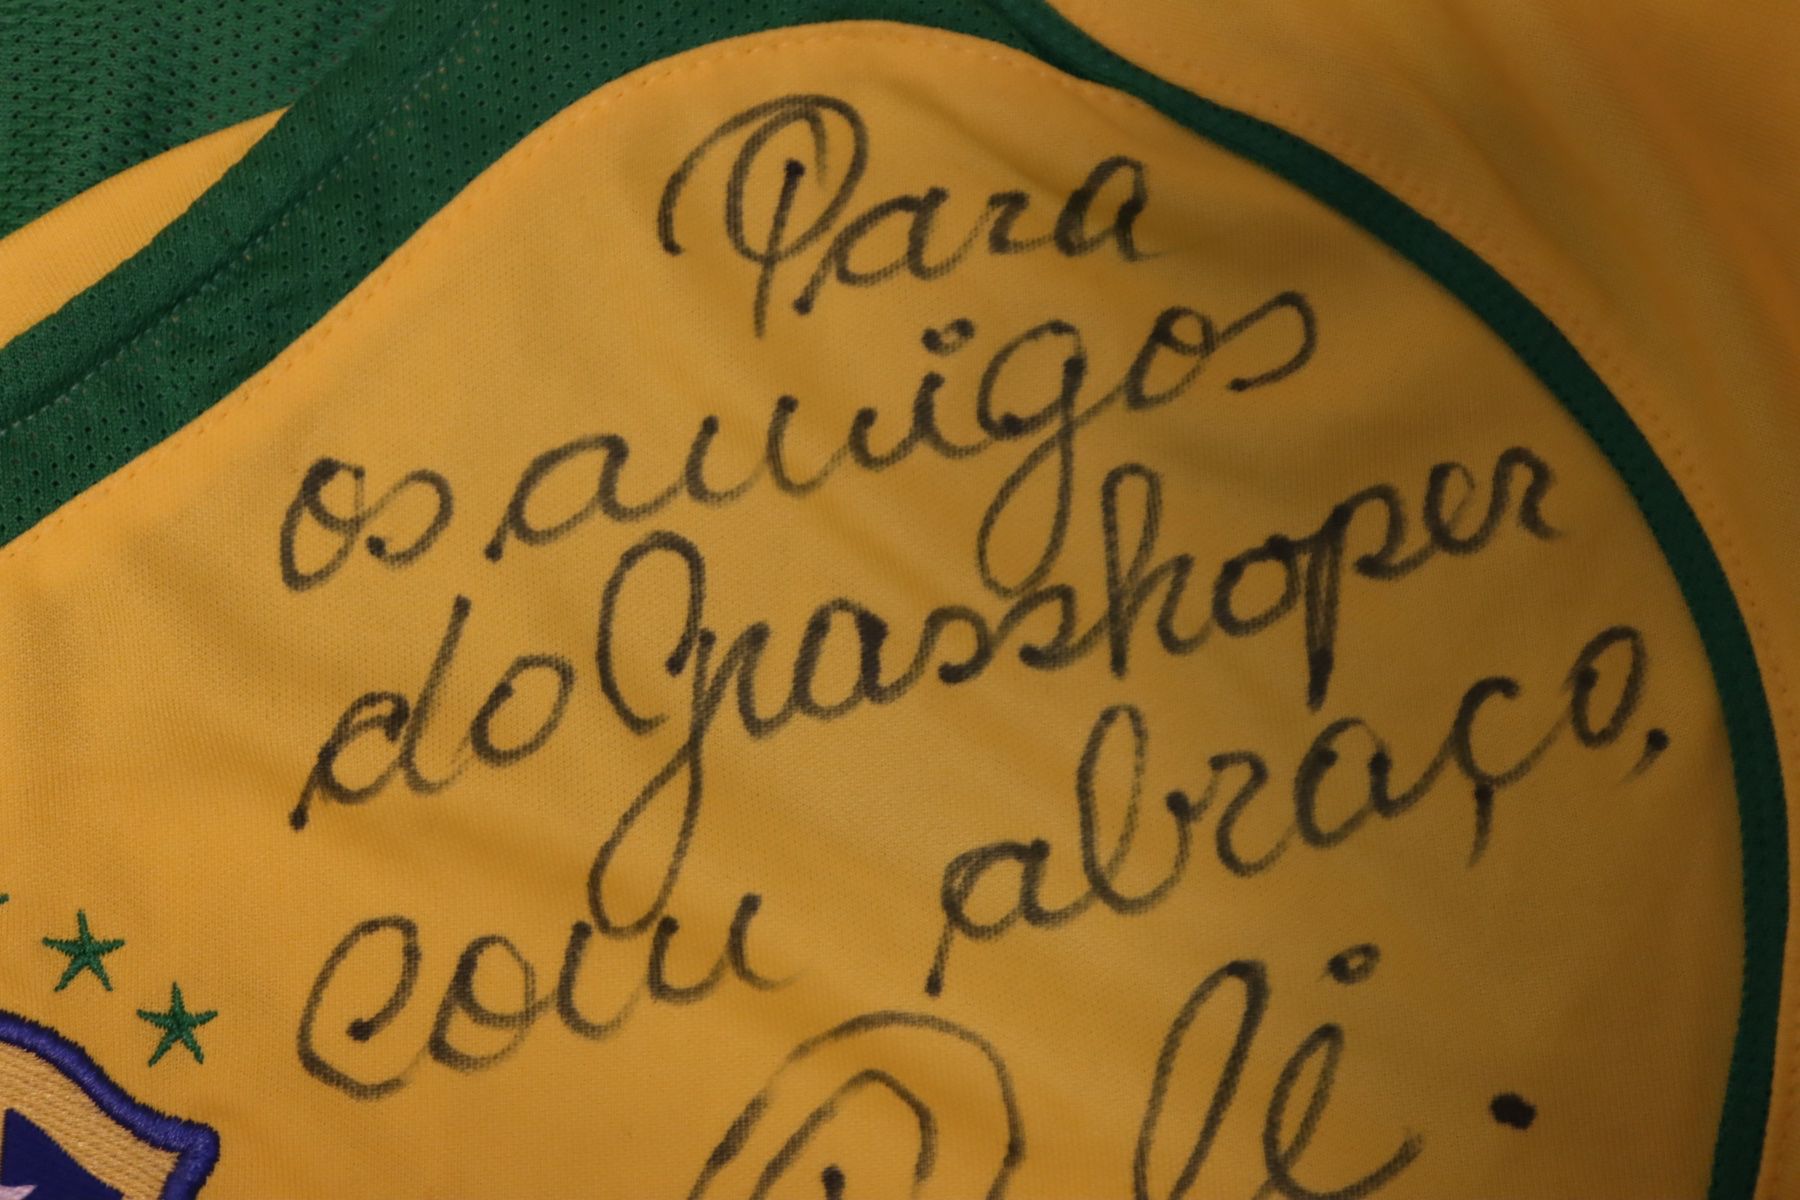 Para
os amigos
do Grasshoper
com abraço,